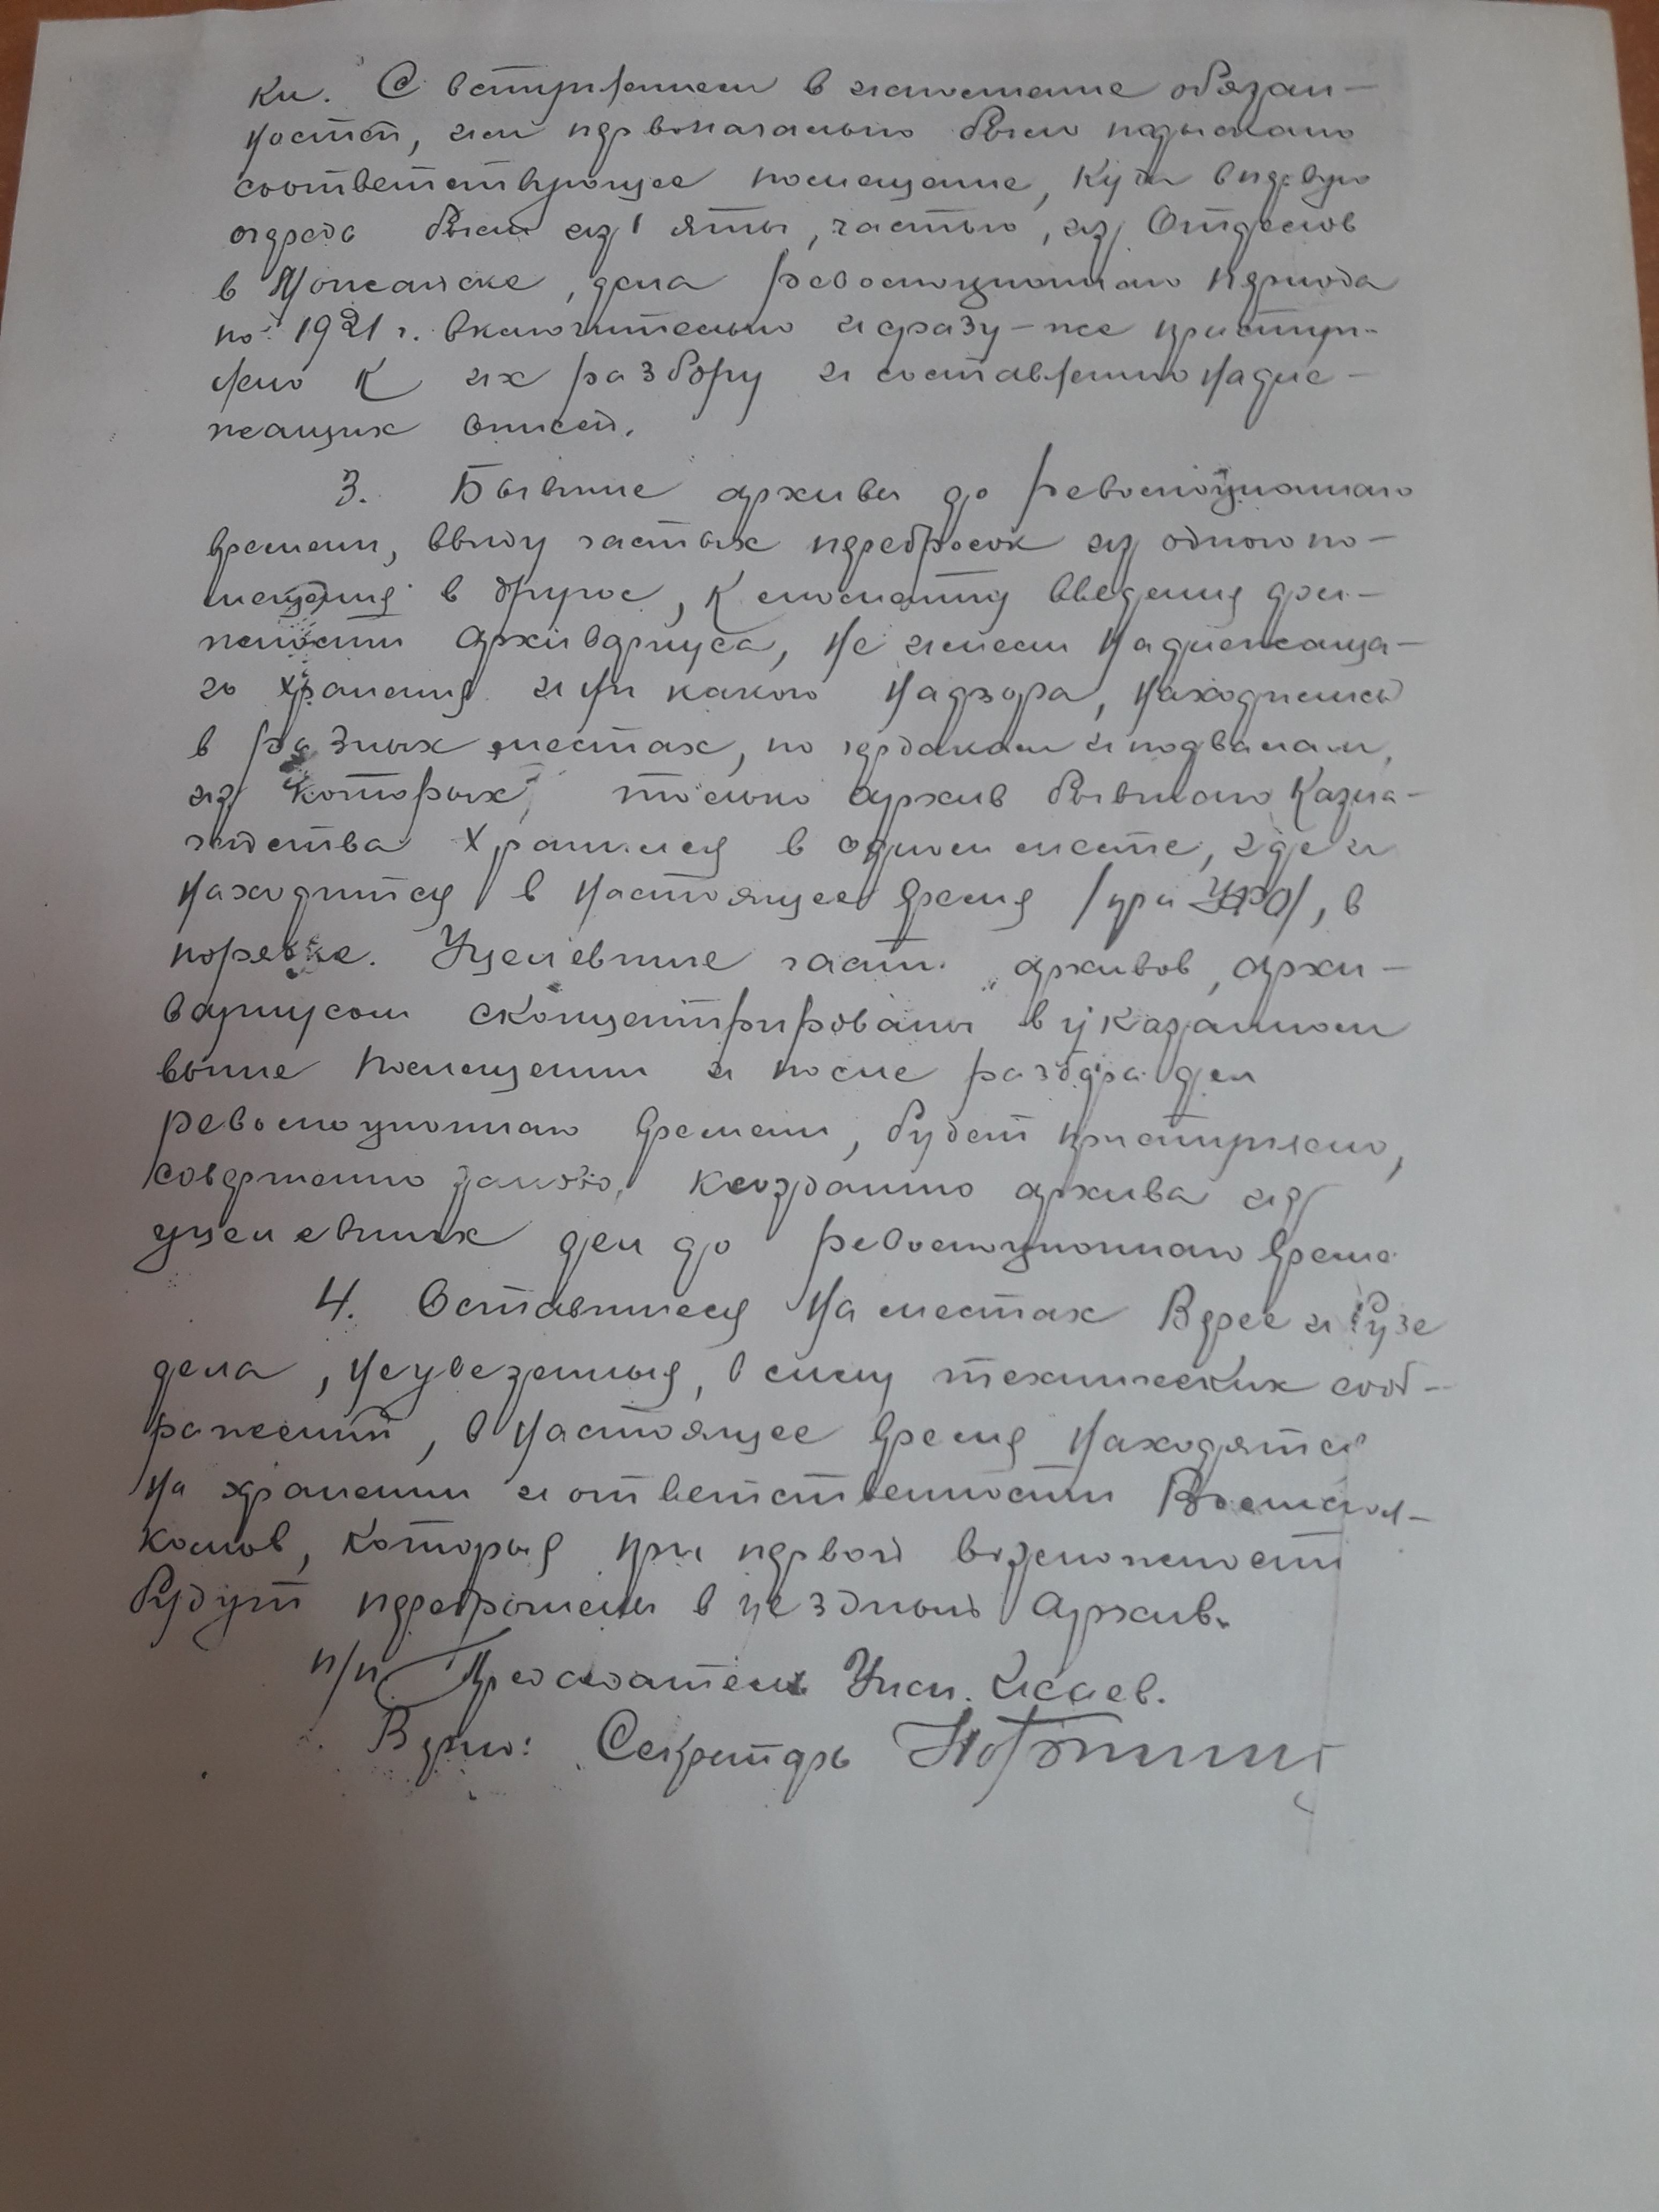 ки. С вступлением в исполнение обязан-
ностей, им первоначально было подыскано
соответствующее помещение, куда в первую
очередь были изъяты, частью, из Отделов
в Можайске, дела революционного периода
по 1921 г. включительно и сразу-же присту-
плено к их разбору и составлению надле-
жащих описей.
3. Бывшие архивы до революционного
времени, ввиду частых перебросок из одного по-
мещения в другое, к моменту введения долж-
ности Архивариуса, не имели надлежаща-
го хранения и ни какого надзора, находились
в разных местах, по чердакам и подвалам,
из которых, только архив бывшаго Казна-
чейства хранился в одном месте, где и
находится в настоящее время /при УФО/, в
порядке. Уцелевшие части архивов, архи-
вариусом сконцентрированы в указанном
выше помещении и после разбора дел
революционного времени, будет приступлено,
совершенно заново, к созданию архива из
уцелевших дел до революционного време
4. Оставшиеся на местах Верее и Рузе
дела, неувезенныя, в силу технических сооб-
ражений, в настоящее время находятся
на хранении и ответственности Волиспол-
комов, которыя при первой возможности
будут переброшены в уездный архив.
п/п. Председатель Уисп. Исаев.
Верно: Секретарь